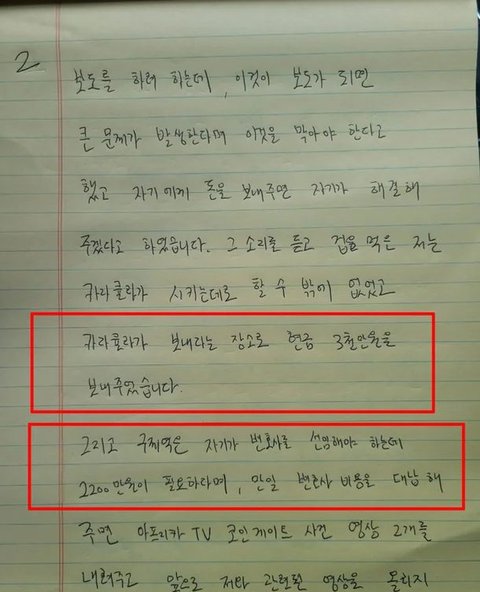 2
보도를 하려 하는데, 이것이 보도가 되면
큰 문제가 발생한다며 이것을 막아야 한다고
했고 자기에게 돈을 보내주면 자기가 해결해
주겠다고 하였습니다. 그 소리를 듣고 겁을 먹은 저는
카라큘라가 시키는데로 할 수 밖에 없었고
카라큘라가 보내라는 장소로 현금 3천만원을
보내주었습니다.
그리고 구제역은 자기가 변호사를 선임해야 하는데
2200만원이 필요하다며, 만일 변호사 비용을 대납해
주면 아프리카TV 코인게이트 사건 영상 2개를
내려주고 앞으로 저와 관련된 영상을 올리지